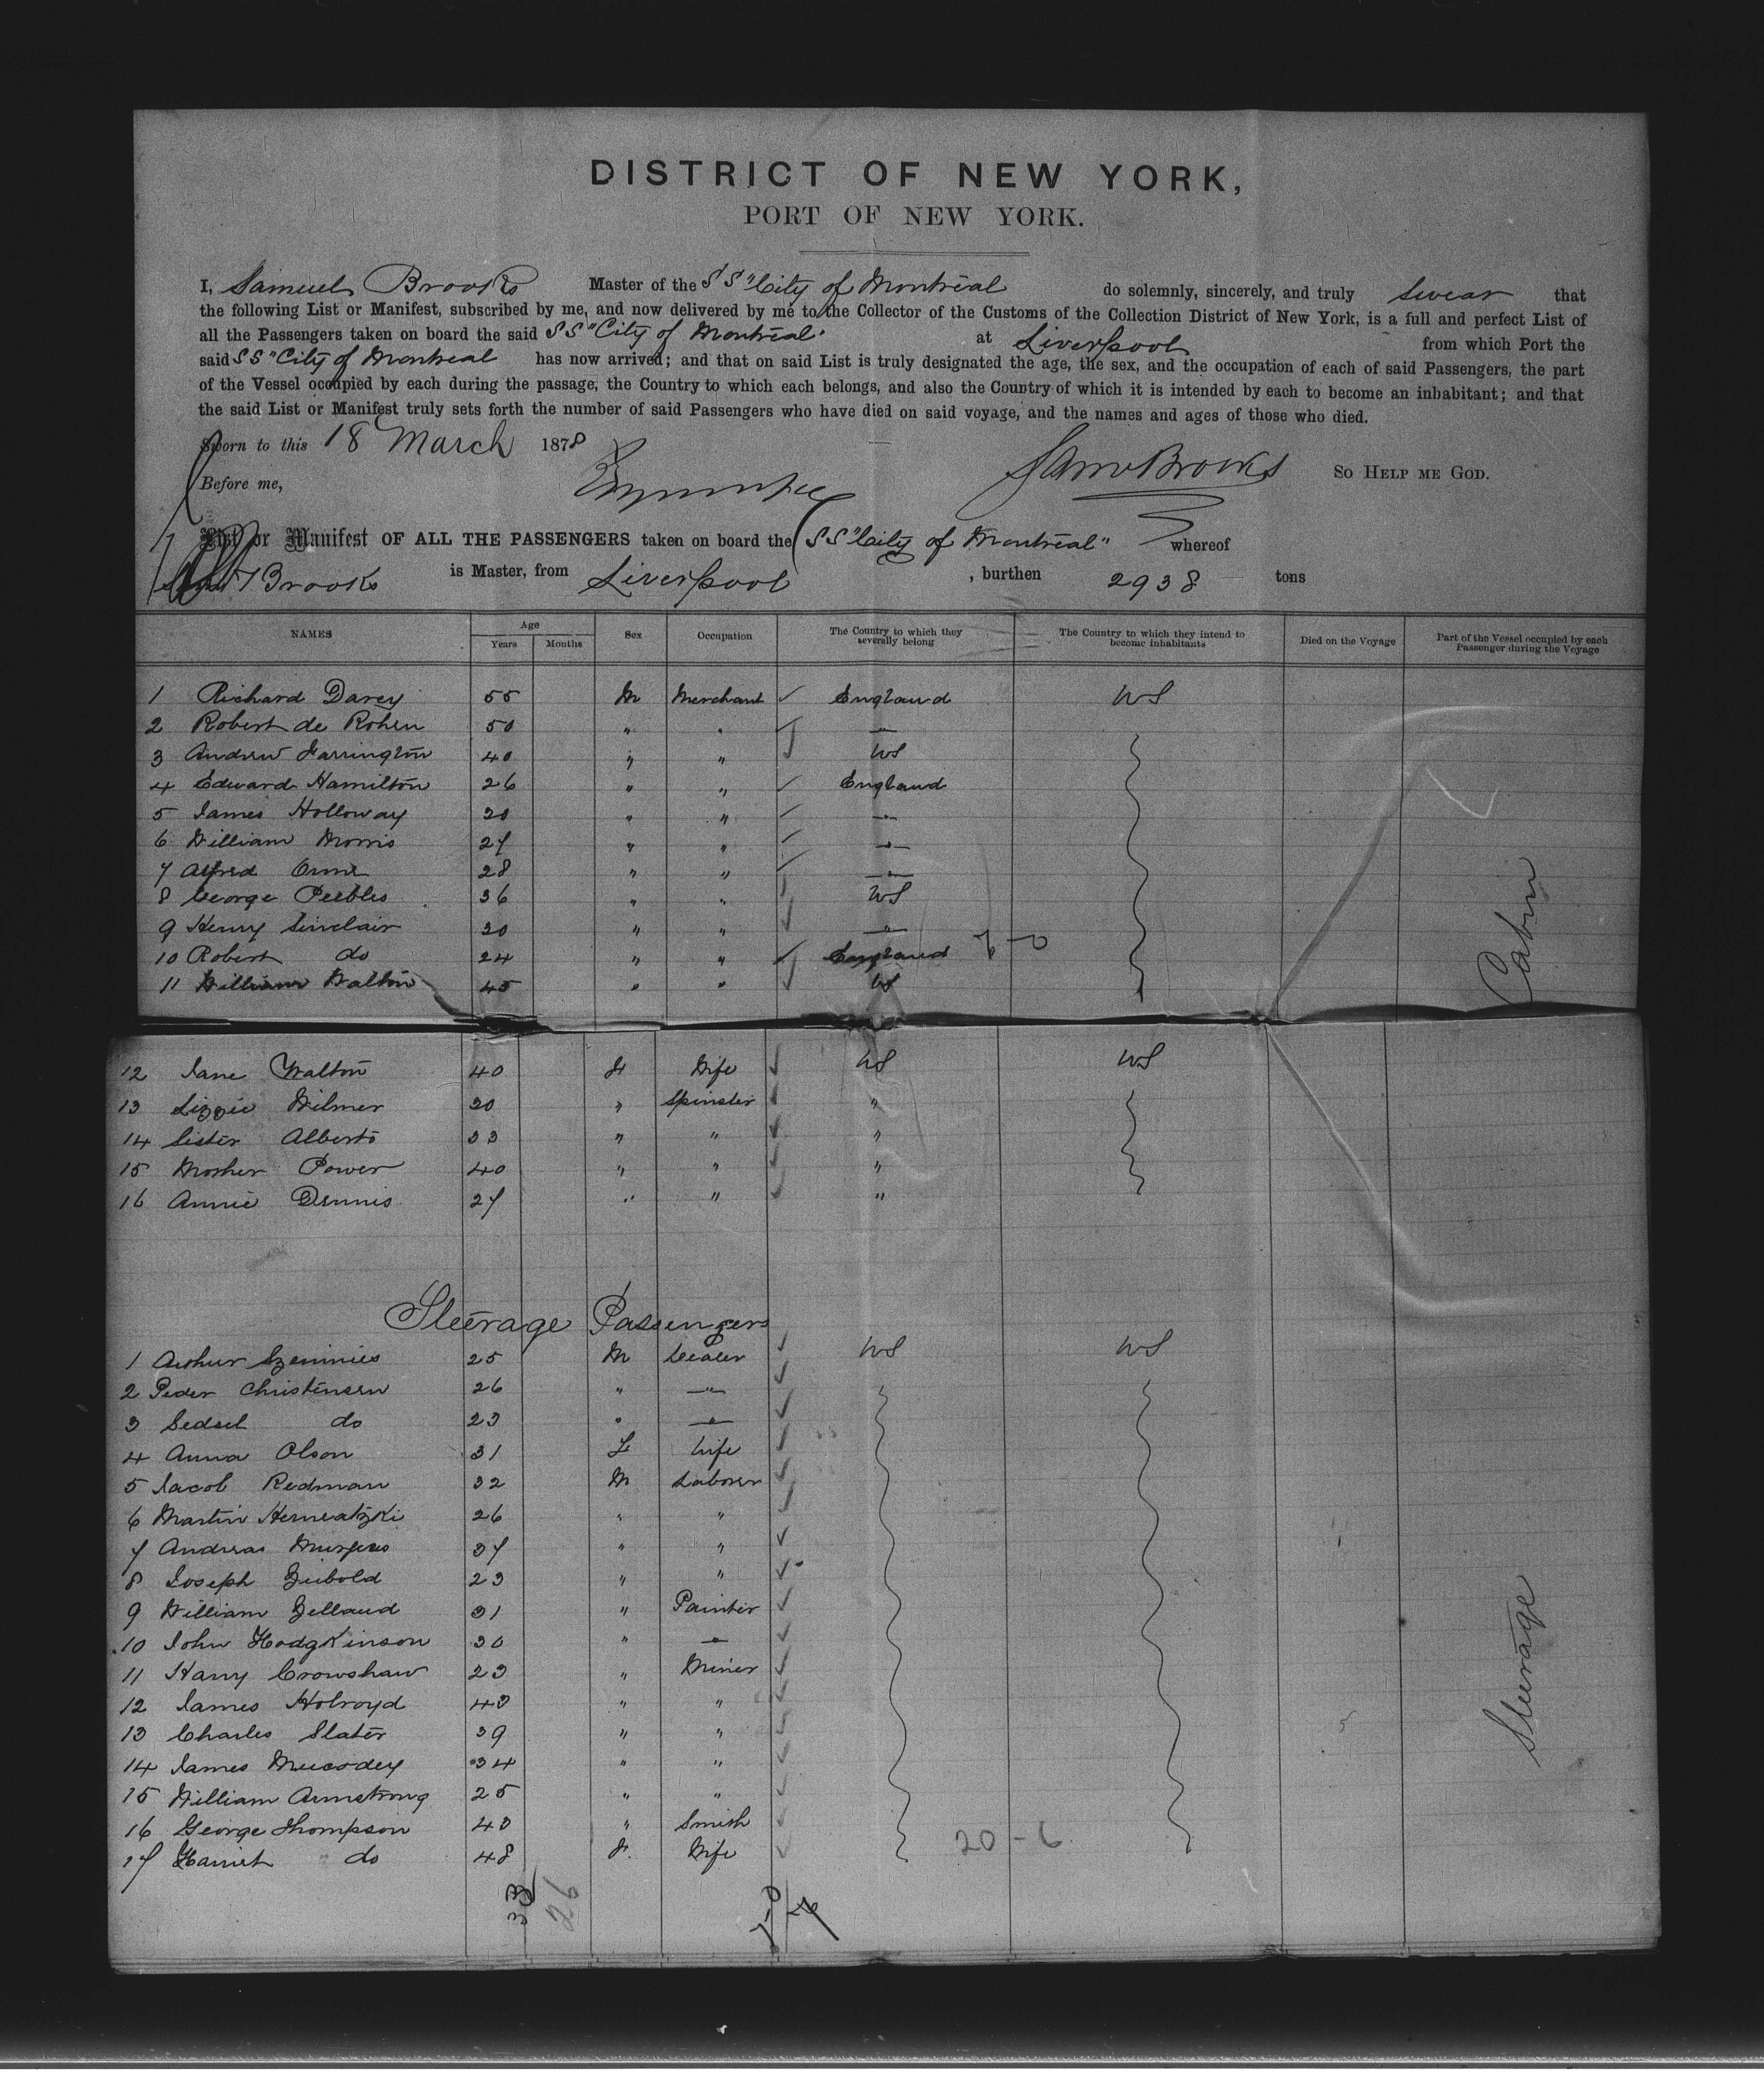 DISTRICT OF NEW YORK,
PORT OF NEW YORK.
I, Samuel Brooks Master of the SS "City of Montreal do solemnly, sincerely, and truly swear that
the following List or Manifest, subscribed by me, and now delivered by me to the Collector of the Customs of the Collection District of New York, is a full and perfect List of
all the Passengers taken on board the said SS "City of Montreal" at Liverpool from which Port the
said SS "City of Montreal has now arrived; and that on said List is truly designated the age, the sex, and the occupation of each of said Passengers, the part
of the Vessel occupied by each during the passage, the Country to which each belongs, and also the Country of which it is intended by each to become an inhabitant; and that
the said List or Manifest truly sets forth the number of said Passengers who have died on said voyage, and the names and ages of those who died.
Sworn to this 18 March 1878
Saml Brooks SO HELP ME GOD.
Before me,
List or Manifest OF ALL THE PASSENGERS taken on board the SS "City of Montreal" whereof
Brooks is Master, from Liverpool , burthen 2938 tons
NAMES Age Years Months Sex Occupation The Country to which they severally belong The Country to which they intend to become inhabitants Died on the Voyage Part of the Vessel occupied by each Passenger during the Voyage
1 Richard Darcy 55 M Merchant England US
2 Robert de Rohen 50 " " "
3 Andrew Farrington 40 " " US
4 Edward Hamilton 26 " " England
5 James Holloway 30 " " "
6 William Morris 27 " " "
7 Alfred Orme 28 " " "
8 George Peebles 36 " " US
9 Henry Sinclair 30 " " "
10 Robert do 24 " " England
11 William Walton 45 " " US
Cabin
12 Jane Walton 40 F Wife US US
13 Lizzie Wilmer 30 " Spinster "
14 Sister Alberto 33 " " "
15 Mother Power 40 " " "
16 Annie Dennis 27 " " "
Steerage Passengers
1 Arthur 25 M Dealer US US
2 Peder Christensen 26 " "
3 Sedsel do 23 " "
4 Anna Olson 31 F Wife
5 Jacob Redman 32 M Laborer
6 Martin 26 " "
7 Andreas 37 " "
8 Joseph 23 " "
9 William 31 " Painter
10 John Hodgkinson 30 " "
11 Harry Crowshaw 23 " Miner
12 James Holroyd 43 " "
13 Charles Slater 39 " "
14 James 34 " "
15 William Armstrong 25 " "
16 George Thompson 43 " Smith
17 Harriet do 48 F. Wife
Steerage
20 - 6
33
26